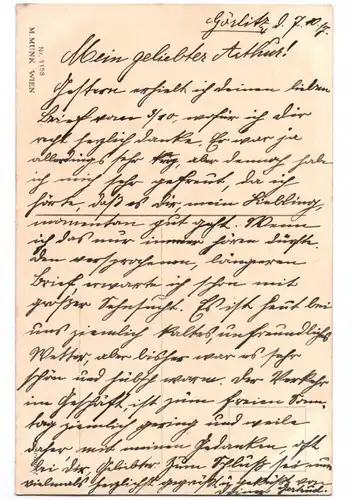 Nr. 1158
M. MUNK WIEN
Görlitz d. 7.10.
Mein geliebter Arthur!
Gestern erhielt ich deinen lieben
Brief vom 3/10, wofür ich dir
recht herzlich danke. Er war ja
allerdings sehr aber dennoch habe
ich mich sehr gefreut, da ich
hörte, daß es dir, mein Liebling,
momentan gut geht. Wenn
ich das nur immer hören dürfte.
Den versprochenen, längeren
Brief erwarte ich schon mit
großer Sehnsucht. Es ist heut bei
uns ziemlich kaltes unfreundliches
Wetter, aber bisher war es sehr
schön und hübsch warm. Der Verkehr
im Geschäft ist zum freien Sonn-
tag ziemlich gering und weile
daher mit meinen Gedanken oft
bei dir, Geliebter. Zum Schluß sei nun
vielmals herzlichst gegrüßt u. geküßt von
deiner